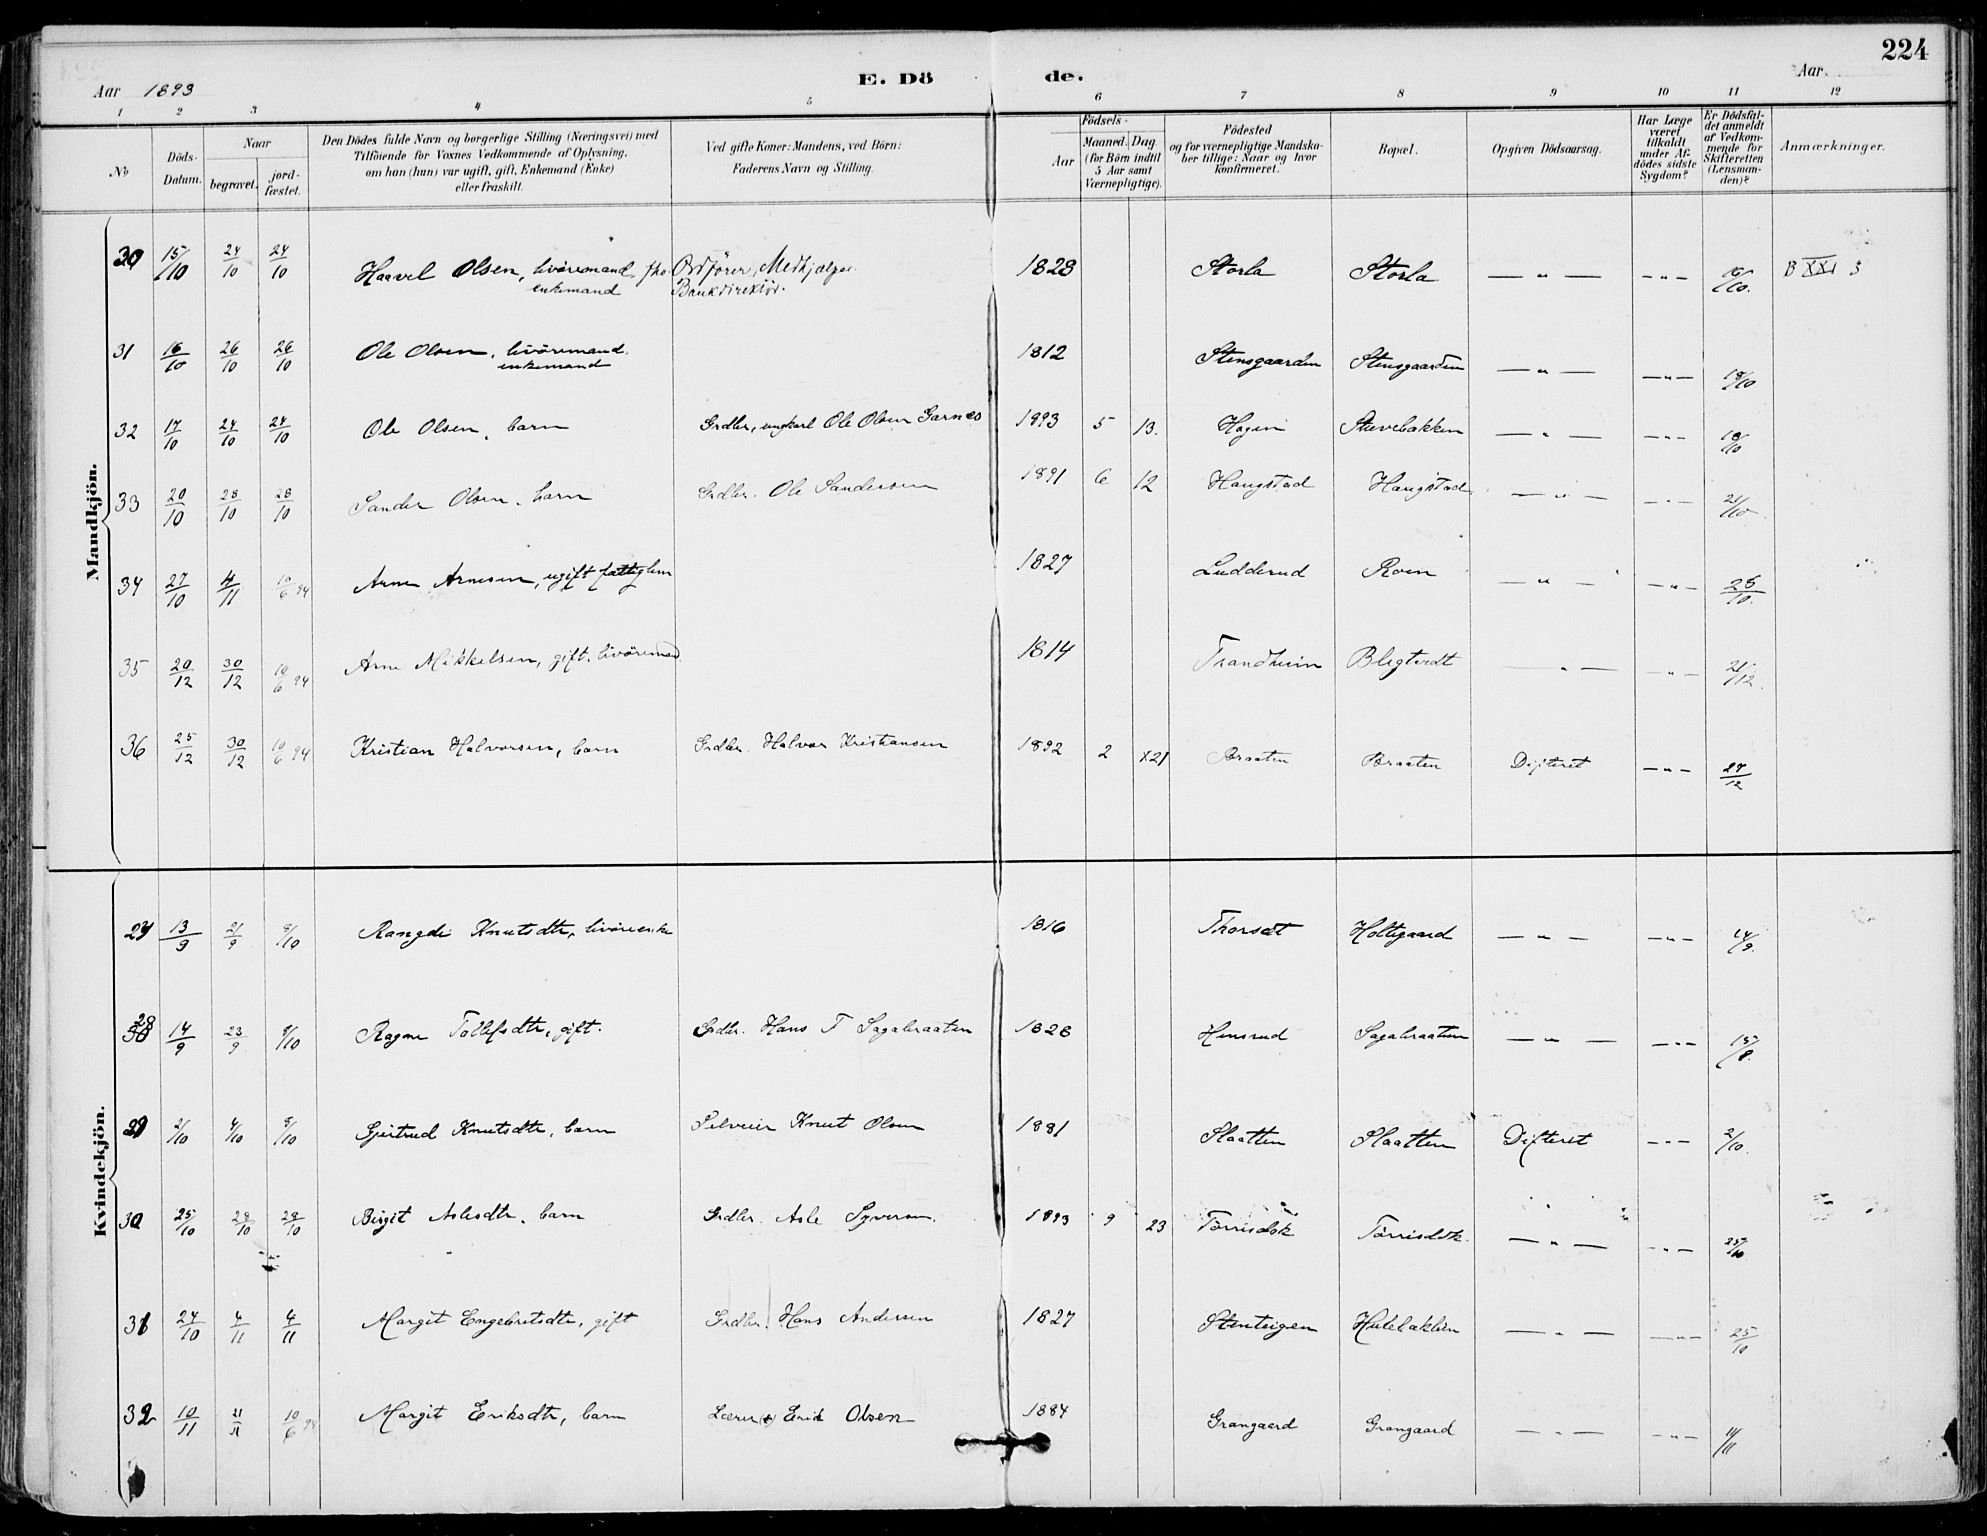 224
Aar 1893
E. Dö de.
Aar
1 2 3 4 5 6 7 8 9 10 11 12
No
Döds-Datum.
Naar
begravet.
jord-fæstet.
Den Dödes fulde Navn og borgerlige Stilling (Næringsvei) med
Tilföiende for Voxnes Vedkommende af Oplysning,
om han (hun) var ugift, gift, Enkemand (Enke)
eller fraskilt.
Ved gifte Koner: Mandens, ved Börn:
Faderens Navn og Stilling.
Födsels-
Aar
Maaned. Dag.
(for Börn indtil
5 Aar samt
Værnepligtige).
Födested
og for værnepligtige Mandska-
ber tillige: Naar og hvor
konfirmeret.
Bopæl.
Opgiven Dödsaarsag.
Har Læge
været
tilkaldt
under Af-
dödes sidste
Sygdom?
Er Dödsfal-
det anmeldt
af Vedkom-
mende for
Skifteretten
(Lensman-
den)?
Anmærkninger.
Mandkjön.
30 15/10 24/10 24/10 Haavel Olsen, livöremand, enkemand, fho. Ordförer, Medhjælper. Bankdirektör. 1828 Storla Storla — " — — " — /10. B XXI 3
31 16/10 26/10 26/10 Ole Olsen, livöremand. enkemand 1812 Stensgaarden Stensgaarden — " — — " — 18/10
32 17/10 24/10 24/10 Ole Olsen, barn Grdbr, ungkarl Ole Olsen Garnes 1893 5 13. Hagen Stuvebakken — " — — " — 18/10
33 20/10 28/10 28/10 Sander Olsen, barn Grdbr. Ole Sandersen 1891 6 12 Haugstad Haugstad — " — — " — 21/10
34 27/10 4/11 10/6 94 Arne Arnesen, ugift fattiglem 1827 Ludderud Roen — " — — " — 28/10.
35 20/12 30/12 10/6 94 Arne Mikkelsen, gift. livöremand 1814 Trandheim Bligtvedt — " — — " — 21/12.
36 25/12 30/12 10/6 94 Kristian Halvorsen, barn Grdbr. Halvor Kristiansen 1892 2 21 Braaten Braaten Difteret — " — 27/12
Kvindekjön.
27 13/9 21/9 8/10 Rangdi Knutsdtr, livöreenke 1816 Thorset Holtegaard — " — — " — 14/9.
28 14/9 23/9 8/10 Ragne Tollefsdtr, gift. Grdbr. Hans T Sagabraaten 1828 Hensrud Sagabraaten — " — — " — 15/9.
29 2/10 4/10 8/10 Gjertrud Knutsdtr, barn Selveier Knut Olsen 1881 Slaatten Slaatten Difteret — " — 2/10.
30 25/10 28/10 28/10 Birgit Aslesdtr, barn Grdbr. Asle Syversen. 1893 9 23 Torrisdsk Torrisdsk. — " — — " — 25/10
31 24/10 4/11 4/11 Margit Engebretsdtr, gift Grdbr. Hans Andersen 1827 Stenteigen — " — — " — 25/10
32 10/11 21/11 10/6 94 Margit Eriksdtr, barn Lærer (+) Erik Olsen 1884 Grangaard Grangaard — " — — " — 11/11